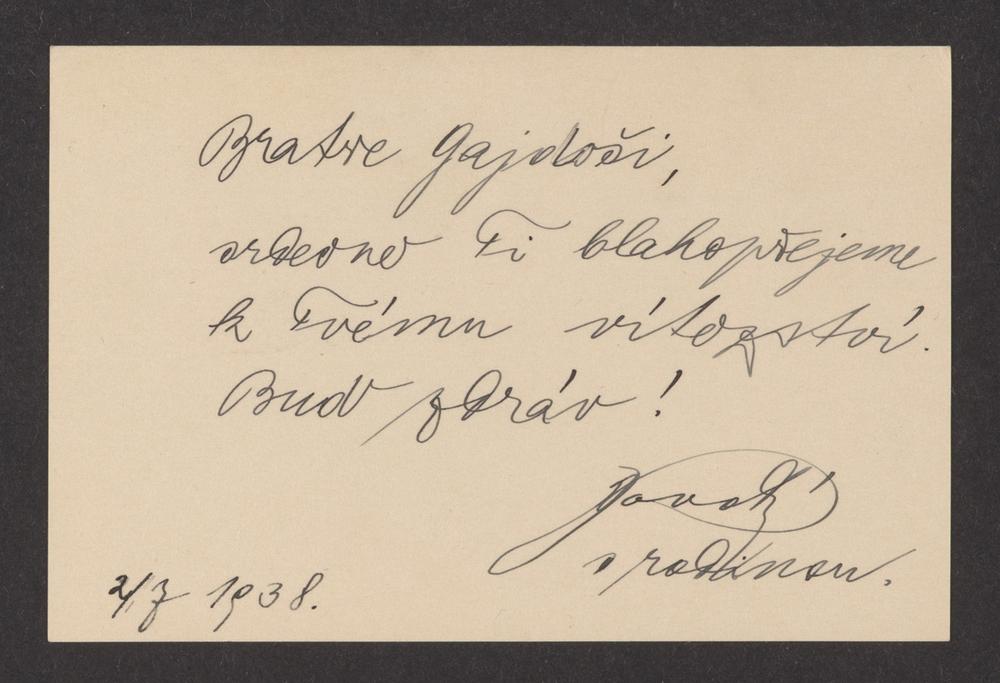 Bratře Gajdoši,
srdečně Ti blahopřejeme
k Tvému vítězství.
Buď zdráv!
s rodinou.
2/7 1938.